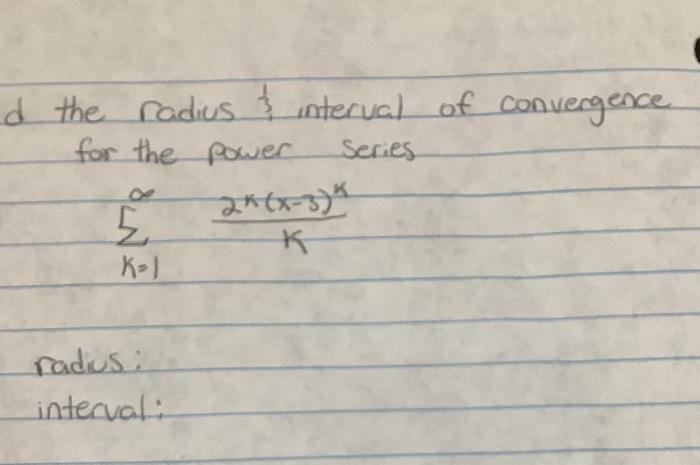 d the radius & interval of convergence
for the power series
∞
Σ 2^k (x-3)^k / k
k=1
radius:
interval: